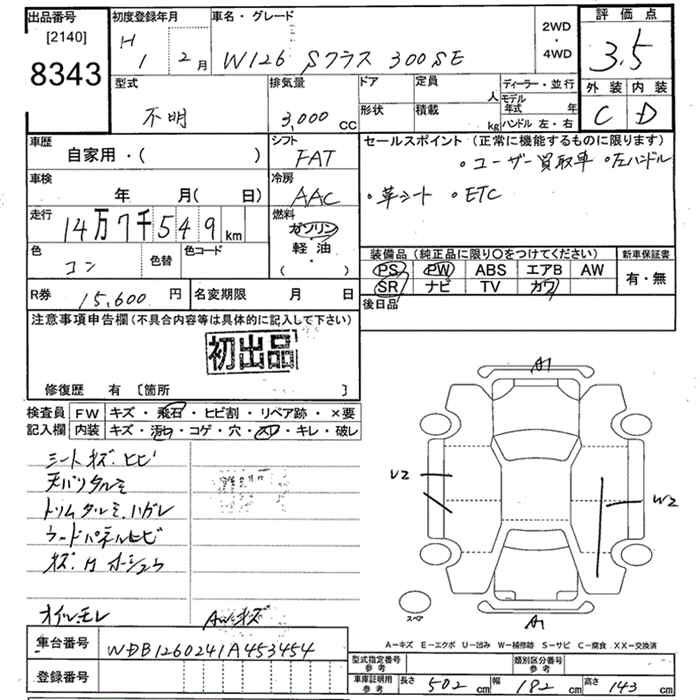 出品番号
[2140]
8343
初度登録年月
H 1 2月
車名・グレード
W126 Sクラス 300SE
2WD
・
4WD
評価点
3.5
外装 内装
C D
型式
不明
排気量
3,000 cc
ドア
形状
定員
人
積載
kg
ディーラー・並行
モデル年式 年
ハンドル 左・右
車歴
自家用・( )
シフト
FAT
セールスポイント(正常に機能するものに限ります)
・ユーザー買取車 ・左ハンドル
・革シート ・ETC
車検
年 月( 日)
冷房
AAC
走行
14万7千549km
燃料
ガソリン
軽油
( ・ )
色
コン
色替
色コード
装備品(純正品に限り○をつけてください)
PS PW ABS エアB AW
SR ナビ TV カワ
新車保証書
有・無
R券
15,600 円
名変期限 月 日
後日品
注意事項申告欄(不具合内容等は具体的に記入して下さい)
初出品
修復歴 有 [箇所 ]
検査員
記入欄
FW キズ・飛石・ヒビ割・リペア跡・×要
内装 キズ・汚れ・コゲ・穴・スレ・キレ・破レ
シートキズ ヒビ
天バリタルミ
トリムタルミ、ハガレ
ウードパネルヒビ
オイルモレ
AWキズ
A1
U2
W2
A1
スペア
A－キズ E－エクボ U－凹み W－補修跡 S－サビ C－腐食 XX－交換済
車台番号
WDB1260241A453454
登録番号
型式指定番号
参考
類別区分番号
参考
車庫証明用
参考
長さ 502 cm
幅 182 cm
高さ 143 cm